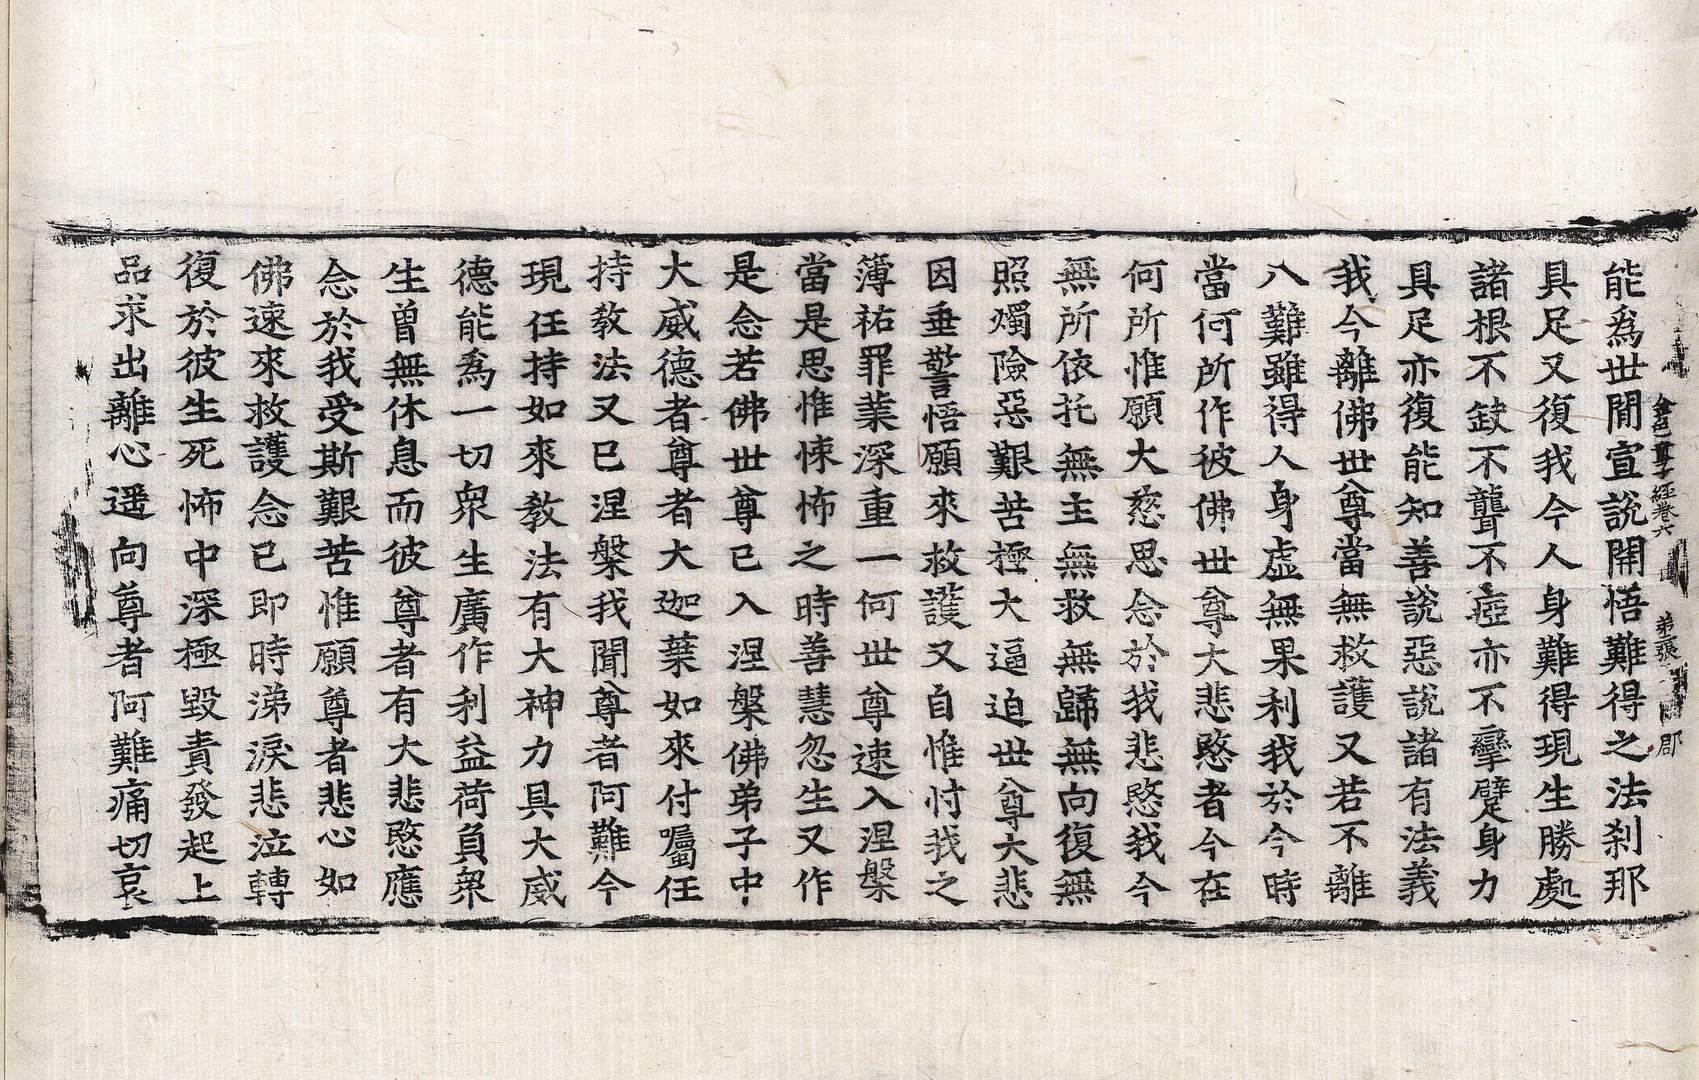 經卷六 第 張 郡
能爲世間宣說開悟難得之法刹那
具足又復我今人身難得現生勝處
諸根不缺不聾不瘂亦不攣躄身力
具足亦復能知善說惡說諸有法義
我今離佛世尊當無救護又若不離
八難雖得人身虛無果利我於今時
當何所作彼佛世尊大悲愍者今在
何所惟願大慈思念於我悲愍我今
無所依托無主無救無歸無向復無
照燭險惡艱苦極大逼迫世尊大悲
因垂警悟願來救護又自惟忖我之
簿祐罪業深重一何世尊速入涅槃
當是思惟悚怖之時善慧忽生又作
是念若佛世尊已入涅槃佛弟子中
大威德者尊者大迦葉如來付囑任
持教法又已涅槃我聞尊者阿難今
現任持如來教法有大神力具大威
德能爲一切衆生廣作利益荷負衆
生曾無休息而彼尊者有大悲愍應
念於我受斯艱苦惟願尊者悲心如
佛速來救護念已即時涕淚悲泣轉
復於彼生死怖中深極毀責發起上
品求出離心遥向尊者阿難痛切哀